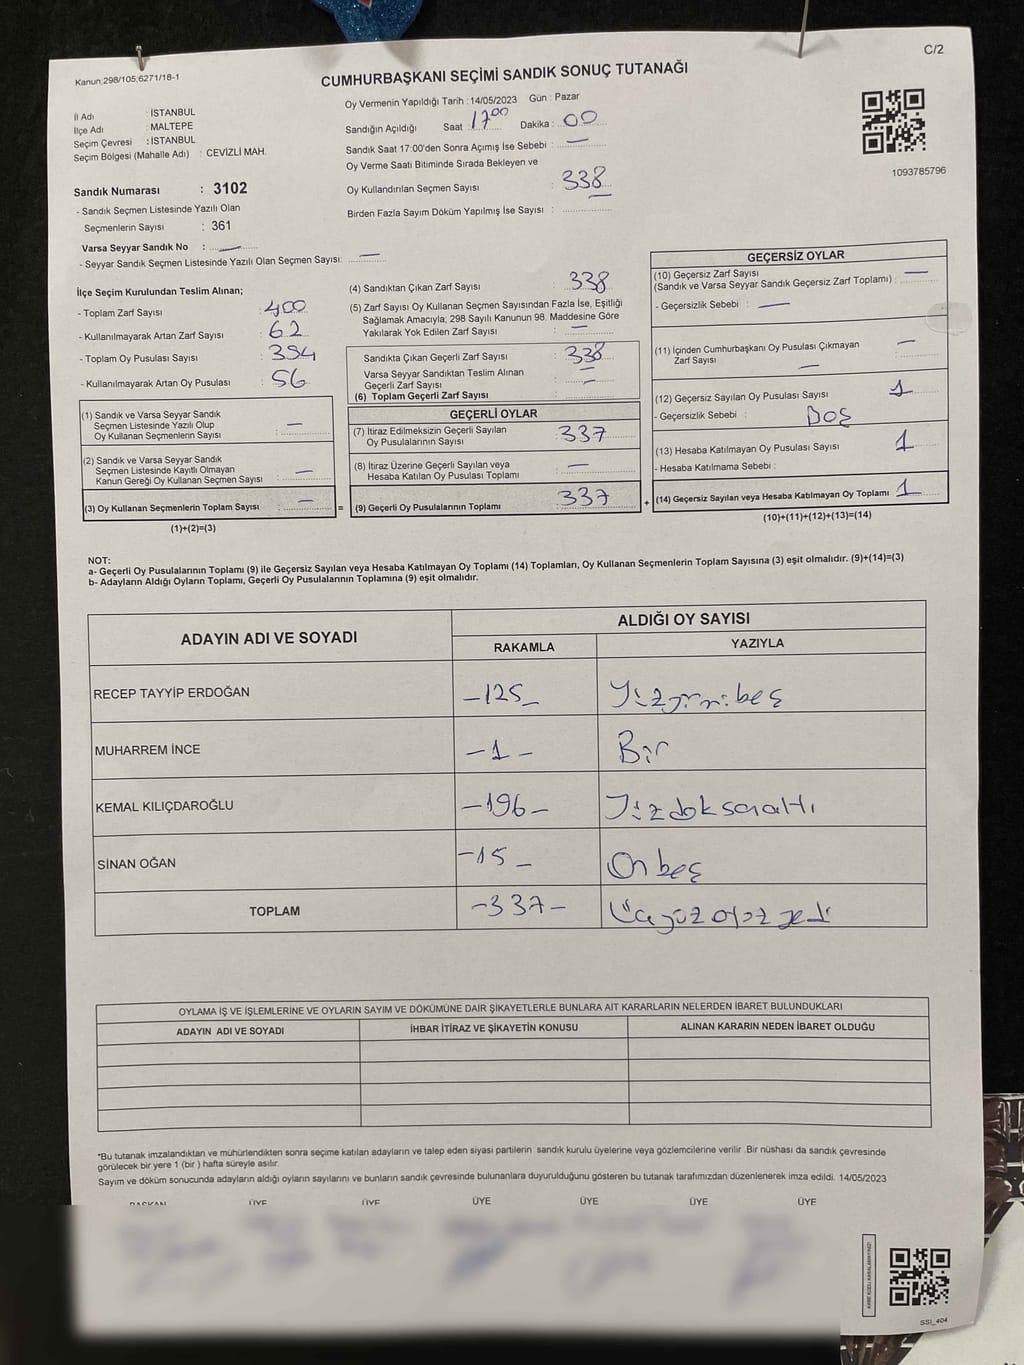 C/2
Kanun:298/105;6271/18-1
CUMHURBAŞKANI SEÇİMİ SANDIK SONUÇ TUTANAĞI
İl Adı : İSTANBUL
İlçe Adı : MALTEPE
Seçim Çevresi : İSTANBUL
Seçim Bölgesi (Mahalle Adı) : CEVİZLİ MAH.
Sandık Numarası : 3102
- Sandık Seçmen Listesinde Yazılı Olan
Seçmenlerin Sayısı : 361
Varsa Seyyar Sandık No : —
- Seyyar Sandık Seçmen Listesinde Yazılı Olan Seçmen Sayısı: —
Oy Vermenin Yapıldığı Tarih : 14/05/2023 Gün : Pazar
Sandığın Açıldığı Saat : 17 00 Dakika : 00
Sandık Saat 17:00'den Sonra Açımış İse Sebebi : —
Oy Verme Saati Bitiminde Sırada Bekleyen ve
Oy Kullandırılan Seçmen Sayısı : 338
Birden Fazla Sayım Döküm Yapılmış İse Sayısı :
1093785796
İlçe Seçim Kurulundan Teslim Alınan;
- Toplam Zarf Sayısı : 400
- Kullanılmayarak Artan Zarf Sayısı : 62
- Toplam Oy Pusulası Sayısı : 394
- Kullanılmayarak Artan Oy Pusulası : 56
(1) Sandık ve Varsa Seyyar Sandık
Seçmen Listesinde Yazılı Olup
Oy Kullanan Seçmenlerin Sayısı : —
(2) Sandık ve Varsa Seyyar Sandık
Seçmen Listesinde Kayıtlı Olmayan
Kanun Gereği Oy Kullanan Seçmen Sayısı : —
(3) Oy Kullanan Seçmenlerin Toplam Sayısı : —
(1)+(2)=(3)
(4) Sandıktan Çıkan Zarf Sayısı : 338
(5) Zarf Sayısı Oy Kullanan Seçmen Sayısından Fazla İse, Eşitliği
Sağlamak Amacıyla; 298 Sayılı Kanunun 98. Maddesine Göre
Yakılarak Yok Edilen Zarf Sayısı : —
Sandıkta Çıkan Geçerli Zarf Sayısı : 338
Varsa Seyyar Sandıktan Teslim Alınan
Geçerli Zarf Sayısı : —
(6) Toplam Geçerli Zarf Sayısı :
GEÇERLİ OYLAR
(7) İtiraz Edilmeksizin Geçerli Sayılan
Oy Pusulalarının Sayısı : 337
(8) İtiraz Üzerine Geçerli Sayılan veya
Hesaba Katılan Oy Pusulası Toplamı : —
= (9) Geçerli Oy Pusulalarının Toplamı : 337
GEÇERSİZ OYLAR
(10) Geçersiz Zarf Sayısı
(Sandık ve Varsa Seyyar Sandık Geçersiz Zarf Toplamı) : —
- Geçersizlik Sebebi : —
(11) İçinden Cumhurbaşkanı Oy Pusulası Çıkmayan
Zarf Sayısı : —
(12) Geçersiz Sayılan Oy Pusulası Sayısı : 1
- Geçersizlik Sebebi : Boş
(13) Hesaba Katılmayan Oy Pusulası Sayısı : 1
- Hesaba Katılmama Sebebi :
+ (14) Geçersiz Sayılan veya Hesaba Katılmayan Oy Toplamı : 1
(10)+(11)+(12)+(13)=(14)
NOT:
a- Geçerli Oy Pusulalarının Toplamı (9) ile Geçersiz Sayılan veya Hesaba Katılmayan Oy Toplamı (14) Toplamları, Oy Kullanan Seçmenlerin Toplam Sayısına (3) eşit olmalıdır. (9)+(14)=(3)
b- Adayların Aldığı Oyların Toplamı, Geçerli Oy Pusulalarının Toplamına (9) eşit olmalıdır.
ADAYIN ADI VE SOYADI ALDIĞI OY SAYISI
RAKAMLA YAZIYLA
RECEP TAYYİP ERDOĞAN -125- Yüzyirmibeş
MUHARREM İNCE -1- Bir
KEMAL KILIÇDAROĞLU -196- Yüzdoksanaltı
SİNAN OĞAN -15- Onbeş
TOPLAM -337- Üçyüzotuzyedi
OYLAMA İŞ VE İŞLEMLERİNE VE OYLARIN SAYIM VE DÖKÜMÜNE DAİR ŞİKAYETLERLE BUNLARA AİT KARARLARIN NELERDEN İBARET BULUNDUKLARI
ADAYIN ADI VE SOYADI İHBAR İTİRAZ VE ŞİKAYETİN KONUSU ALINAN KARARIN NEDEN İBARET OLDUĞU
*Bu tutanak imzalandıktan ve mühürlendikten sonra seçime katılan adayların ve talep eden siyasi partilerin sandık kurulu üyelerine veya gözlemcilerine verilir .Bir nüshası da sandık çevresinde
görülecek bir yere 1 (bir ) hafta süreyle asılır.
Sayım ve döküm sonucunda adayların aldığı oyların sayılarını ve bunların sandık çevresinde bulunanlara duyurulduğunu gösteren bu tutanak tarafımızdan düzenlenerek imza edildi. 14/05/2023
BAŞKAN ÜYE ÜYE ÜYE ÜYE ÜYE ÜYE
SSI_404